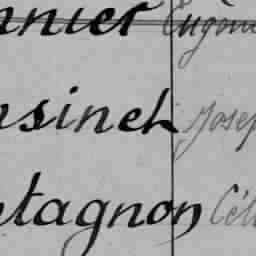 nnier Eugèn
nsinch Josep
ntagnon Céli